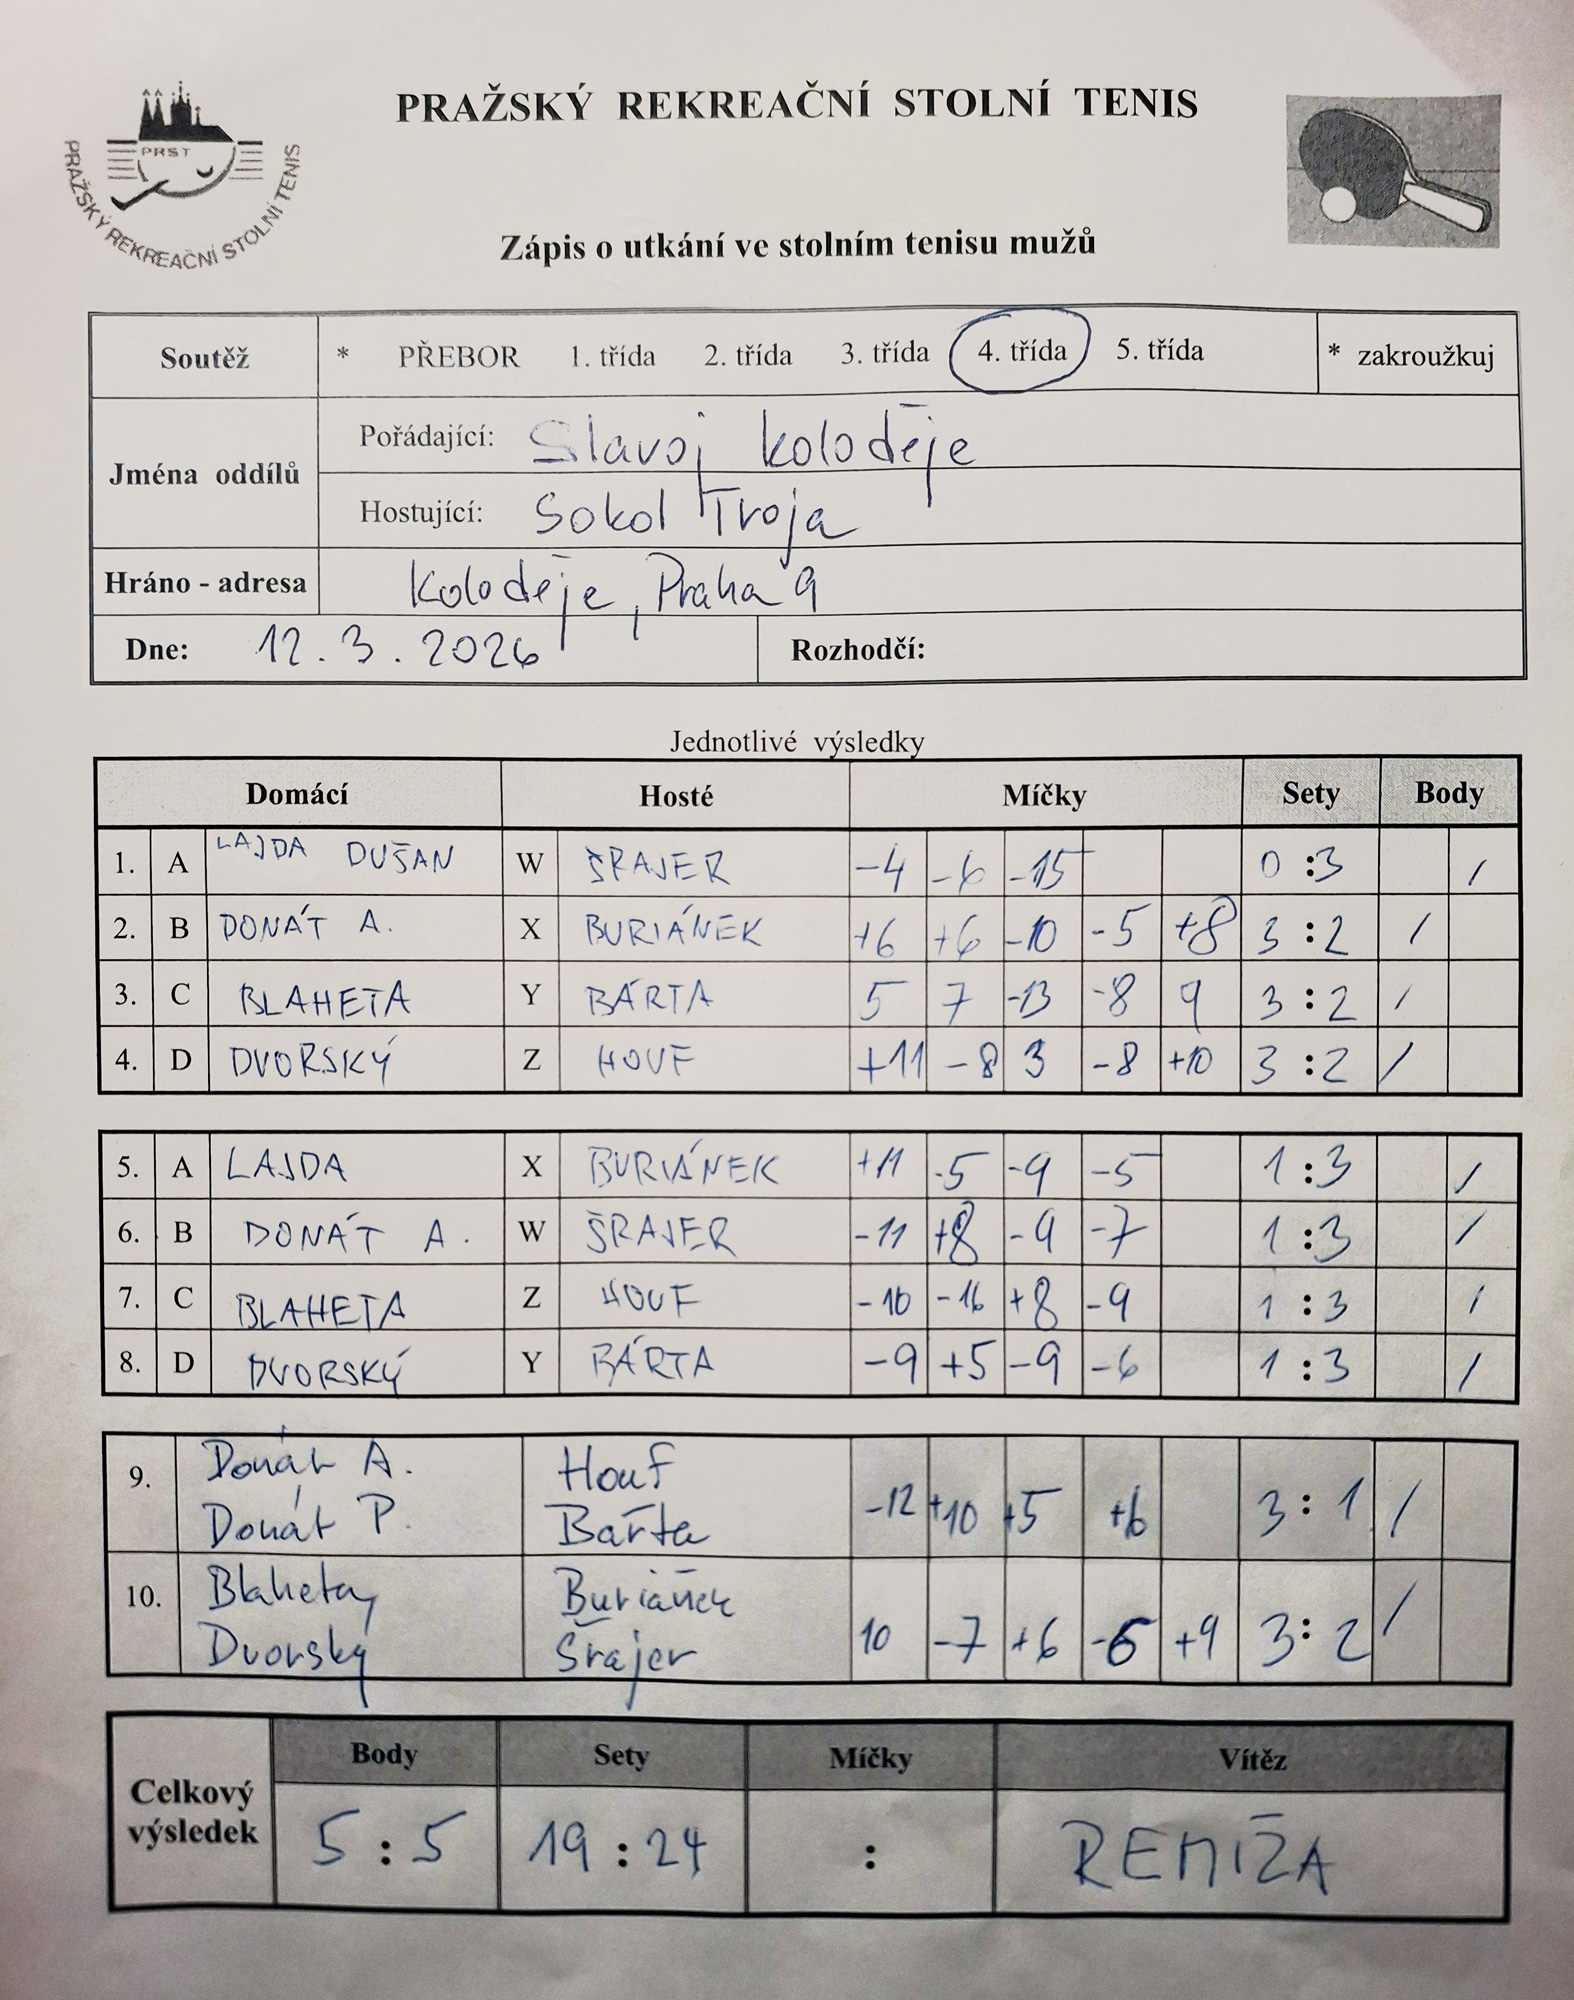 PRAŽSKÝ REKREAČNÍ STOLNÍ TENIS
PRST
PRAŽSKÝ REKREAČNÍ STOLNÍ TENIS
Zápis o utkání ve stolním tenisu mužů
Soutěž * PŘEBOR 1. třída 2. třída 3. třída 4. třída 5. třída * zakroužkuj
Jména oddílů
Pořádající: Slavoj Koloděje
Hostující: Sokol Troja
Hráno - adresa Koloděje, Praha 9
Dne: 12.3.2026 Rozhodčí:
Jednotlivé výsledky
Domácí Hosté Míčky Sety Body
1. A LAJDA DUŠAN W ŠRAJER -4 -6 -15 0 :3 /
2. B DONÁT A. X BURIÁNEK +6 +6 -10 -5 +8 3 :2 /
3. C BLAHETA Y BÁRTA 5 7 -13 -8 9 3 :2 /
4. D DVORSKÝ Z HOUF +11 -8 3 -8 +10 3 :2 /
5. A LAJDA X BURIÁNEK +11 -5 -9 -5 1 :3 /
6. B DONÁT A. W ŠRAJER -11 +8 -9 -7 1 :3 /
7. C BLAHETA Z HOUF -10 -16 +8 -9 1 :3 /
8. D DVORSKÝ Y BÁRTA -9 +5 -9 -6 1 :3 /
9. Donát A. Houf
Donát P. Bařta -12 +10 +5 +6 3: 1 /
10. Blaheta Buriánek
Dvorský Šrajer 10 -7 +6 -6 +9 3: 2 /
Celkový výsledek
Body Sety Míčky Vítěz
5 : 5 19 : 24 : REMÍZA